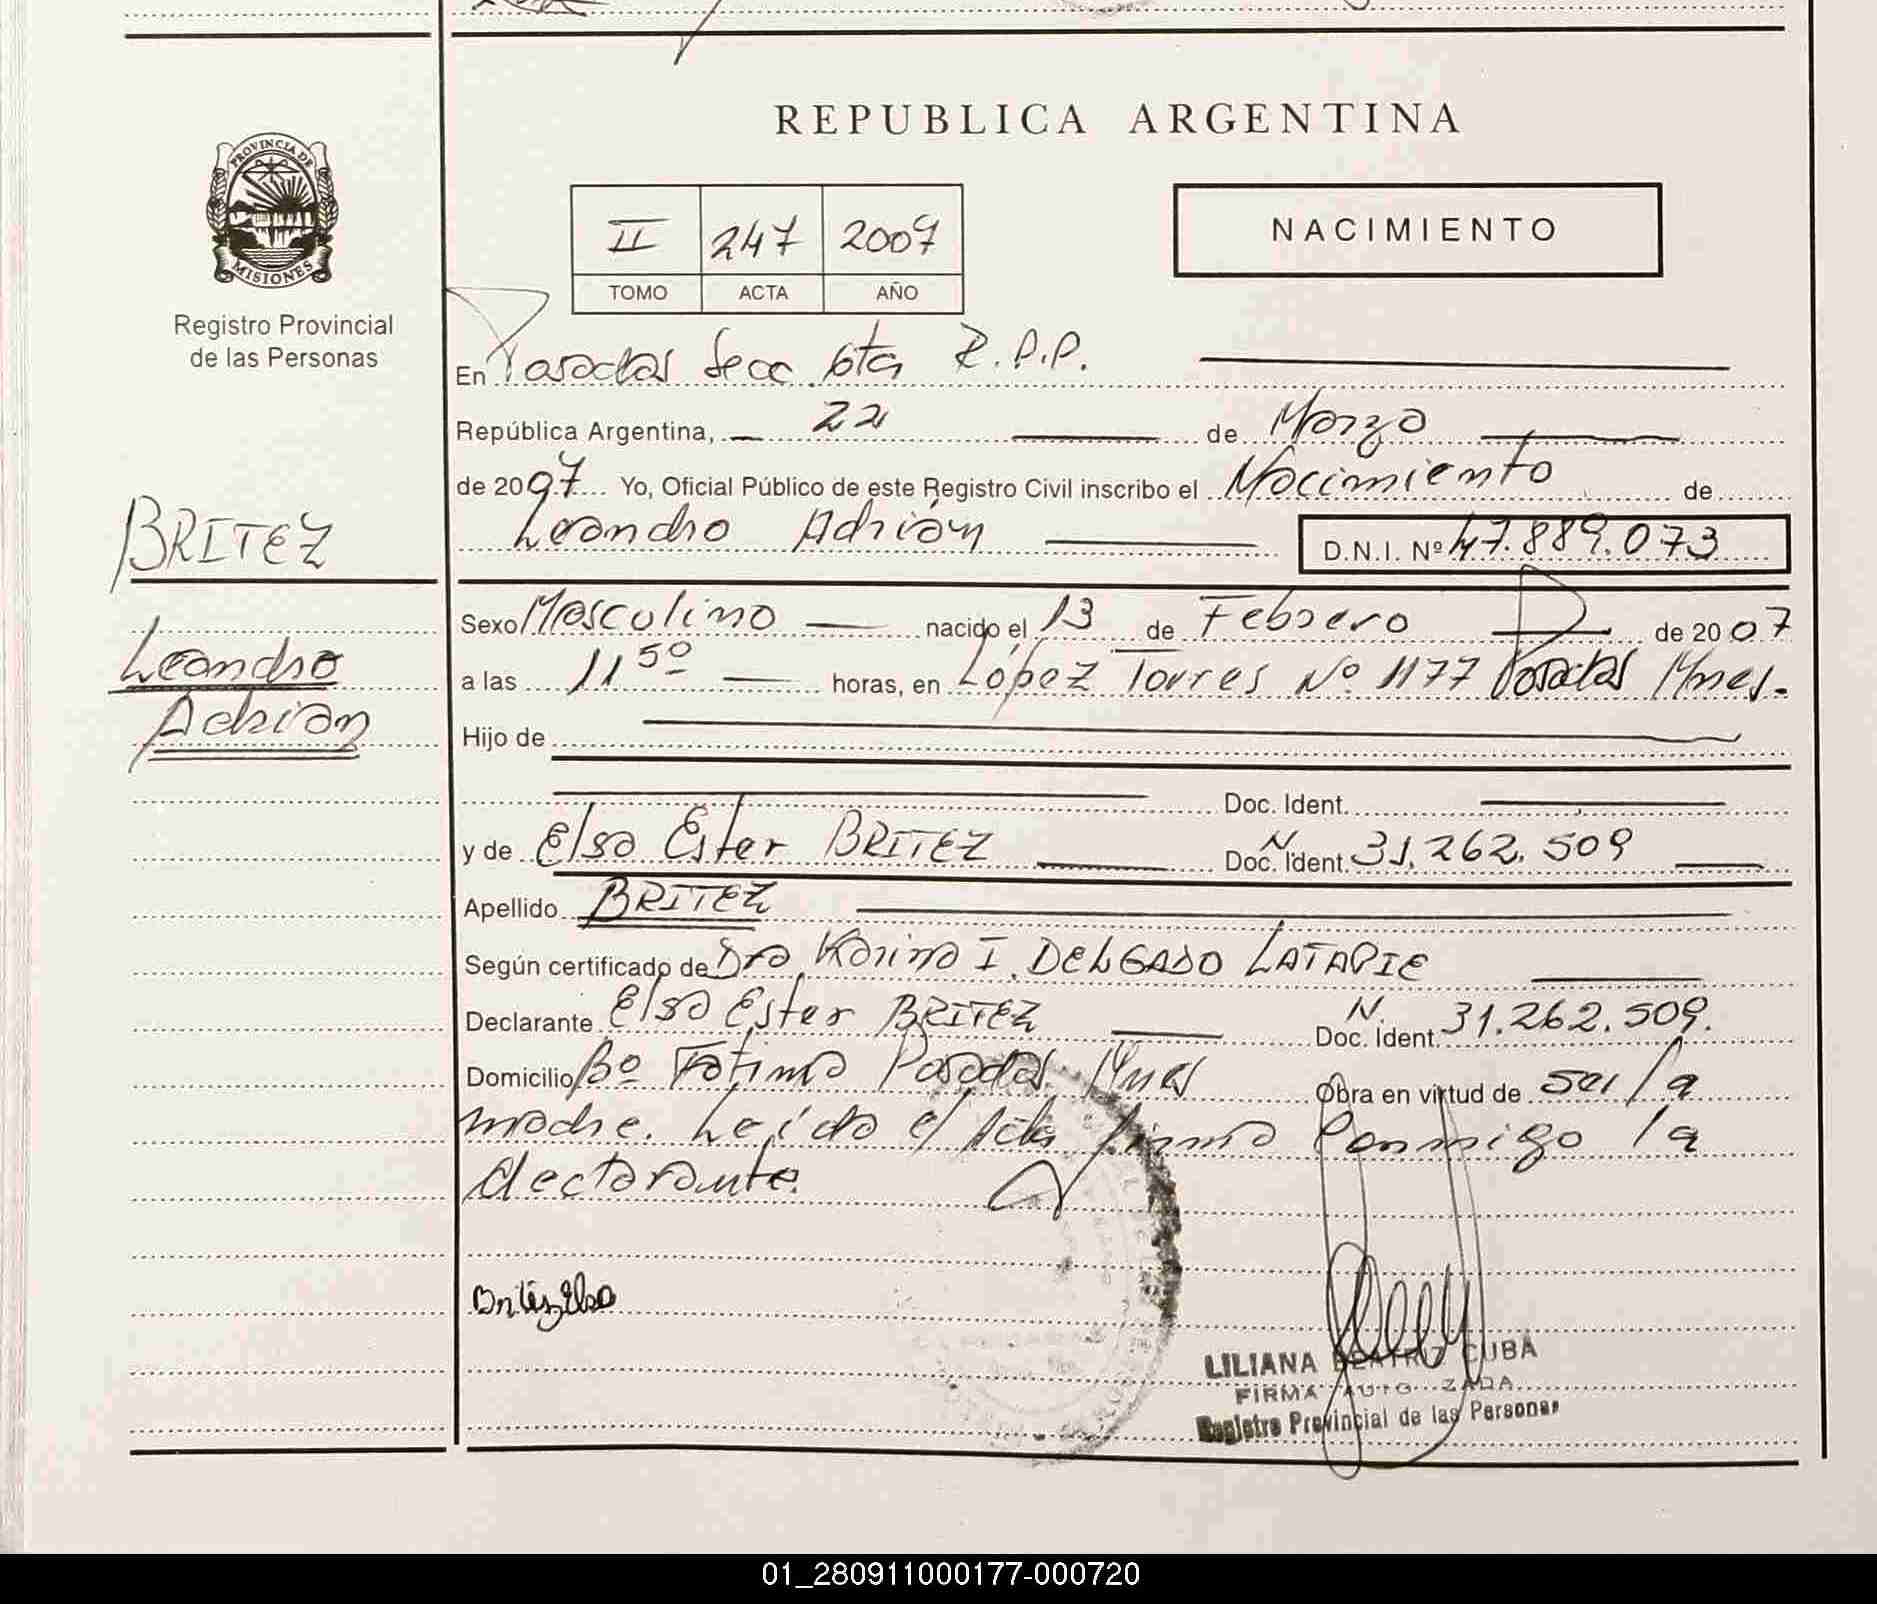 REPUBLICA ARGENTINA
PROVINCIA DE
MISIONES
Registro Provincial
de las Personas
II 247 2007
TOMO ACTA AÑO
NACIMIENTO
En Posadas Secc 6ta R.P.P.
República Argentina, 22 de Marzo
de 2007 Yo, Oficial Público de este Registro Civil inscribo el Nacimiento de
Leandro Adrián D.N.I. Nº 47.889.073
BRITEZ
Leandro
Adrián
Sexo Masculino nacido el 13 de Febrero de 2007
a las 11 50 horas, en López Torres Nº 1177 Posadas Mnes.
Hijo de
Doc. Ident.
y de Elsa Ester BRITEZ Doc. Ident. N. 31.262.509
Apellido BRITEZ
Según certificado de Dra Karina I. DELGADO LATAPIE
Declarante Elsa Ester BRITEZ Doc. Ident. N. 31.262.509.
Domicilio Bº Fatima Posadas Mnes Obra en virtud de ser la
madre. Leída el Acta firma conmigo la
declarante.
Britez Elsa
LILIANA BEATRIZ CUBA
FIRMA AUTORIZADA
Registro Provincial de las Personas
01_280911000177-000720